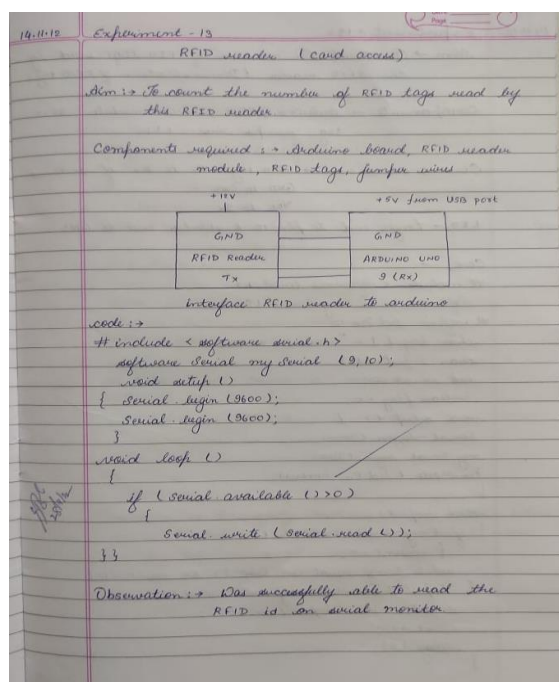 Page
14.11.19 Experiment - 13
RFID reader (card access)
Aim :→ To count the number of RFID tags read by
this RFID reader
Components required :→ Arduino board, RFID reader
module, RFID tags, jumper wires
+12V +5V from USB port
GND GND
RFID Reader ARDUINO UNO
Tx 9 (Rx)
interface RFID reader to arduino
code :→
# include < software serial.h>
software Serial my Serial (9,10);
void setup ()
{ Serial.begin (9600);
Serial.begin (9600);
}
void loop ()
{
if (serial.available ()>0)
{
Serial.write (serial.read ());
}}
Observation :→ Was successfully able to read the
RFID id on serial monitor